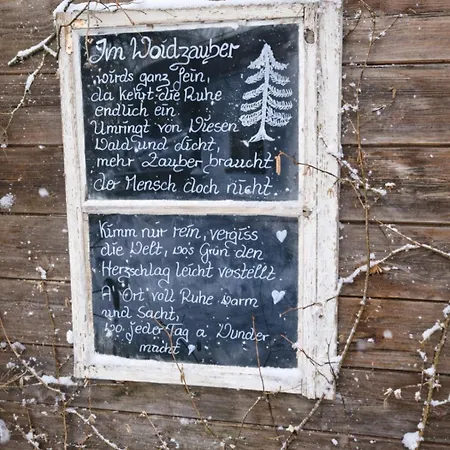 Im Woidzauber
wirds ganz fein,
da kehrt die Ruhe
endlich ein.
Umringt von Wiesen
Wald und Licht,
mehr Zauber braucht
da Mensch doch nicht.
Kimm nur rein, vergiss
die Welt, wo's Grün den
Herzschlag leicht verstellt.
A Ort voll Ruhe warm
und Sacht,
wo jeder Tag a Wunder
macht